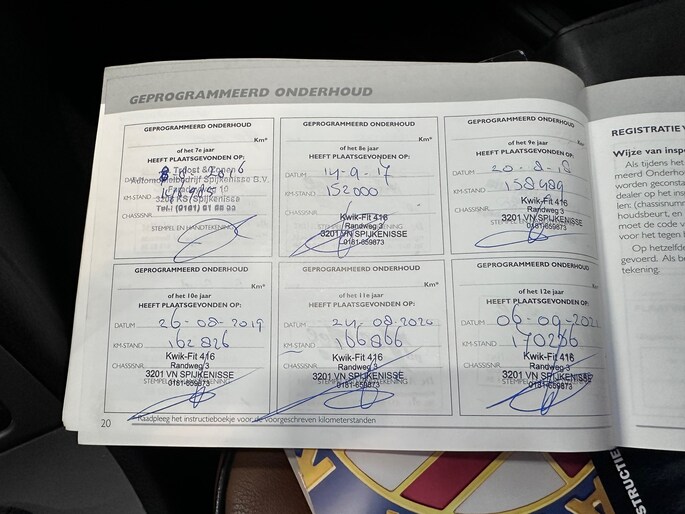 GEPROGRAMMEERD ONDERHOUD
GEPROGRAMMEERD ONDERHOUD
Km*
of het 7e jaar
HEEFT PLAATSGEVONDEN OP:
DATUM
Automobielbedrijf Spijkenisse B.V.
KM-STAND
3208 KS Spijkenisse
CHASSISNR.
STEMPEL EN HANDTEKENING
GEPROGRAMMEERD ONDERHOUD
Km*
of het 8e jaar
HEEFT PLAATSGEVONDEN OP:
DATUM 14-9-17
KM-STAND 152000
CHASSISNR.
Kwik-Fit 416
Randweg 3
3201 VN SPIJKENISSE
0181-659873
GEPROGRAMMEERD ONDERHOUD
Km*
of het 9e jaar
HEEFT PLAATSGEVONDEN OP:
DATUM 20-8-18
KM-STAND 158489
CHASSISNR.
Kwik-Fit 416
Randweg 3
3201 VN SPIJKENISSE
0181-659873
GEPROGRAMMEERD ONDERHOUD
Km*
of het 10e jaar
HEEFT PLAATSGEVONDEN OP:
DATUM 26-08-2019
KM-STAND 162826
CHASSISNR.
Kwik-Fit 416
Randweg 3
3201 VN SPIJKENISSE
0181-659873
GEPROGRAMMEERD ONDERHOUD
Km*
of het 11e jaar
HEEFT PLAATSGEVONDEN OP:
DATUM 24-08-2020
KM-STAND 166866
CHASSISNR.
Kwik-Fit 416
Randweg 3
3201 VN SPIJKENISSE
0181-659873
GEPROGRAMMEERD ONDERHOUD
Km*
of het 12e jaar
HEEFT PLAATSGEVONDEN OP:
DATUM 06-09-202
KM-STAND 170266
CHASSISNR.
Kwik-Fit 416
Randweg 3
3201 VN SPIJKENISSE
0181-659873
20
Raadpleeg het instructieboekje voor de voorgeschreven kilometerstanden
REGISTRATIE V
Wijze van insp
Als tijdens het
meerd Onderho
worden geconsta
dealer op het insp
len: (chassisnumm
houdsbeurt, en
moet de code v
voor het tegen b
Op hetzelfde
gevoerd. Als be
tekening.
STRUCTIE